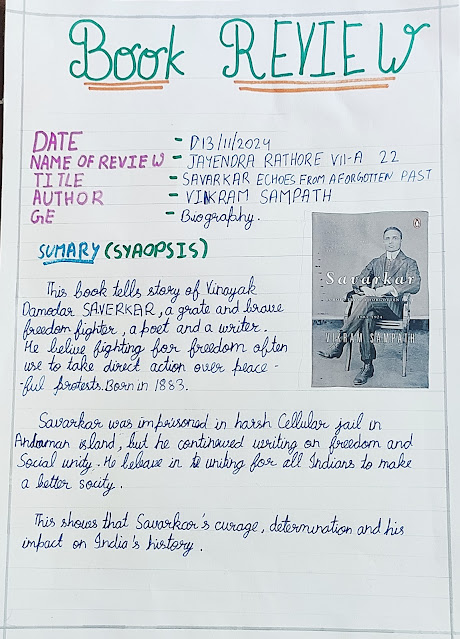 Book REVIEW
DATE - D13/11/2024
NAME OF REVIEW - JAYENDRA RATHORE VII-A 22
TITLE - SAVARKAR ECHOES FROM A FORGOTTEN PAST
AUTHOR - VIKRAM SAMPATH
GE - Biography.
SUMARY (SYAOPSIS)
This book tells story of Vinayak
Damodar SAVERKAR, a grate and brave
freedom fighter, a poet and a writer.
He belive fighting for freedom often
use to take direct action over peace -
ful protests. Born in 1883.
Savarkar
VIKRAM SAMPATH
Savarkar was imprisoned in harsh Cellular jail in
Andaman island, but he continowed writing on freedom and
Social unity. He beleave in uniting for all Indians to make
a better socity.
This shows that Savarkar's curage, determination and his
impact on India's history.